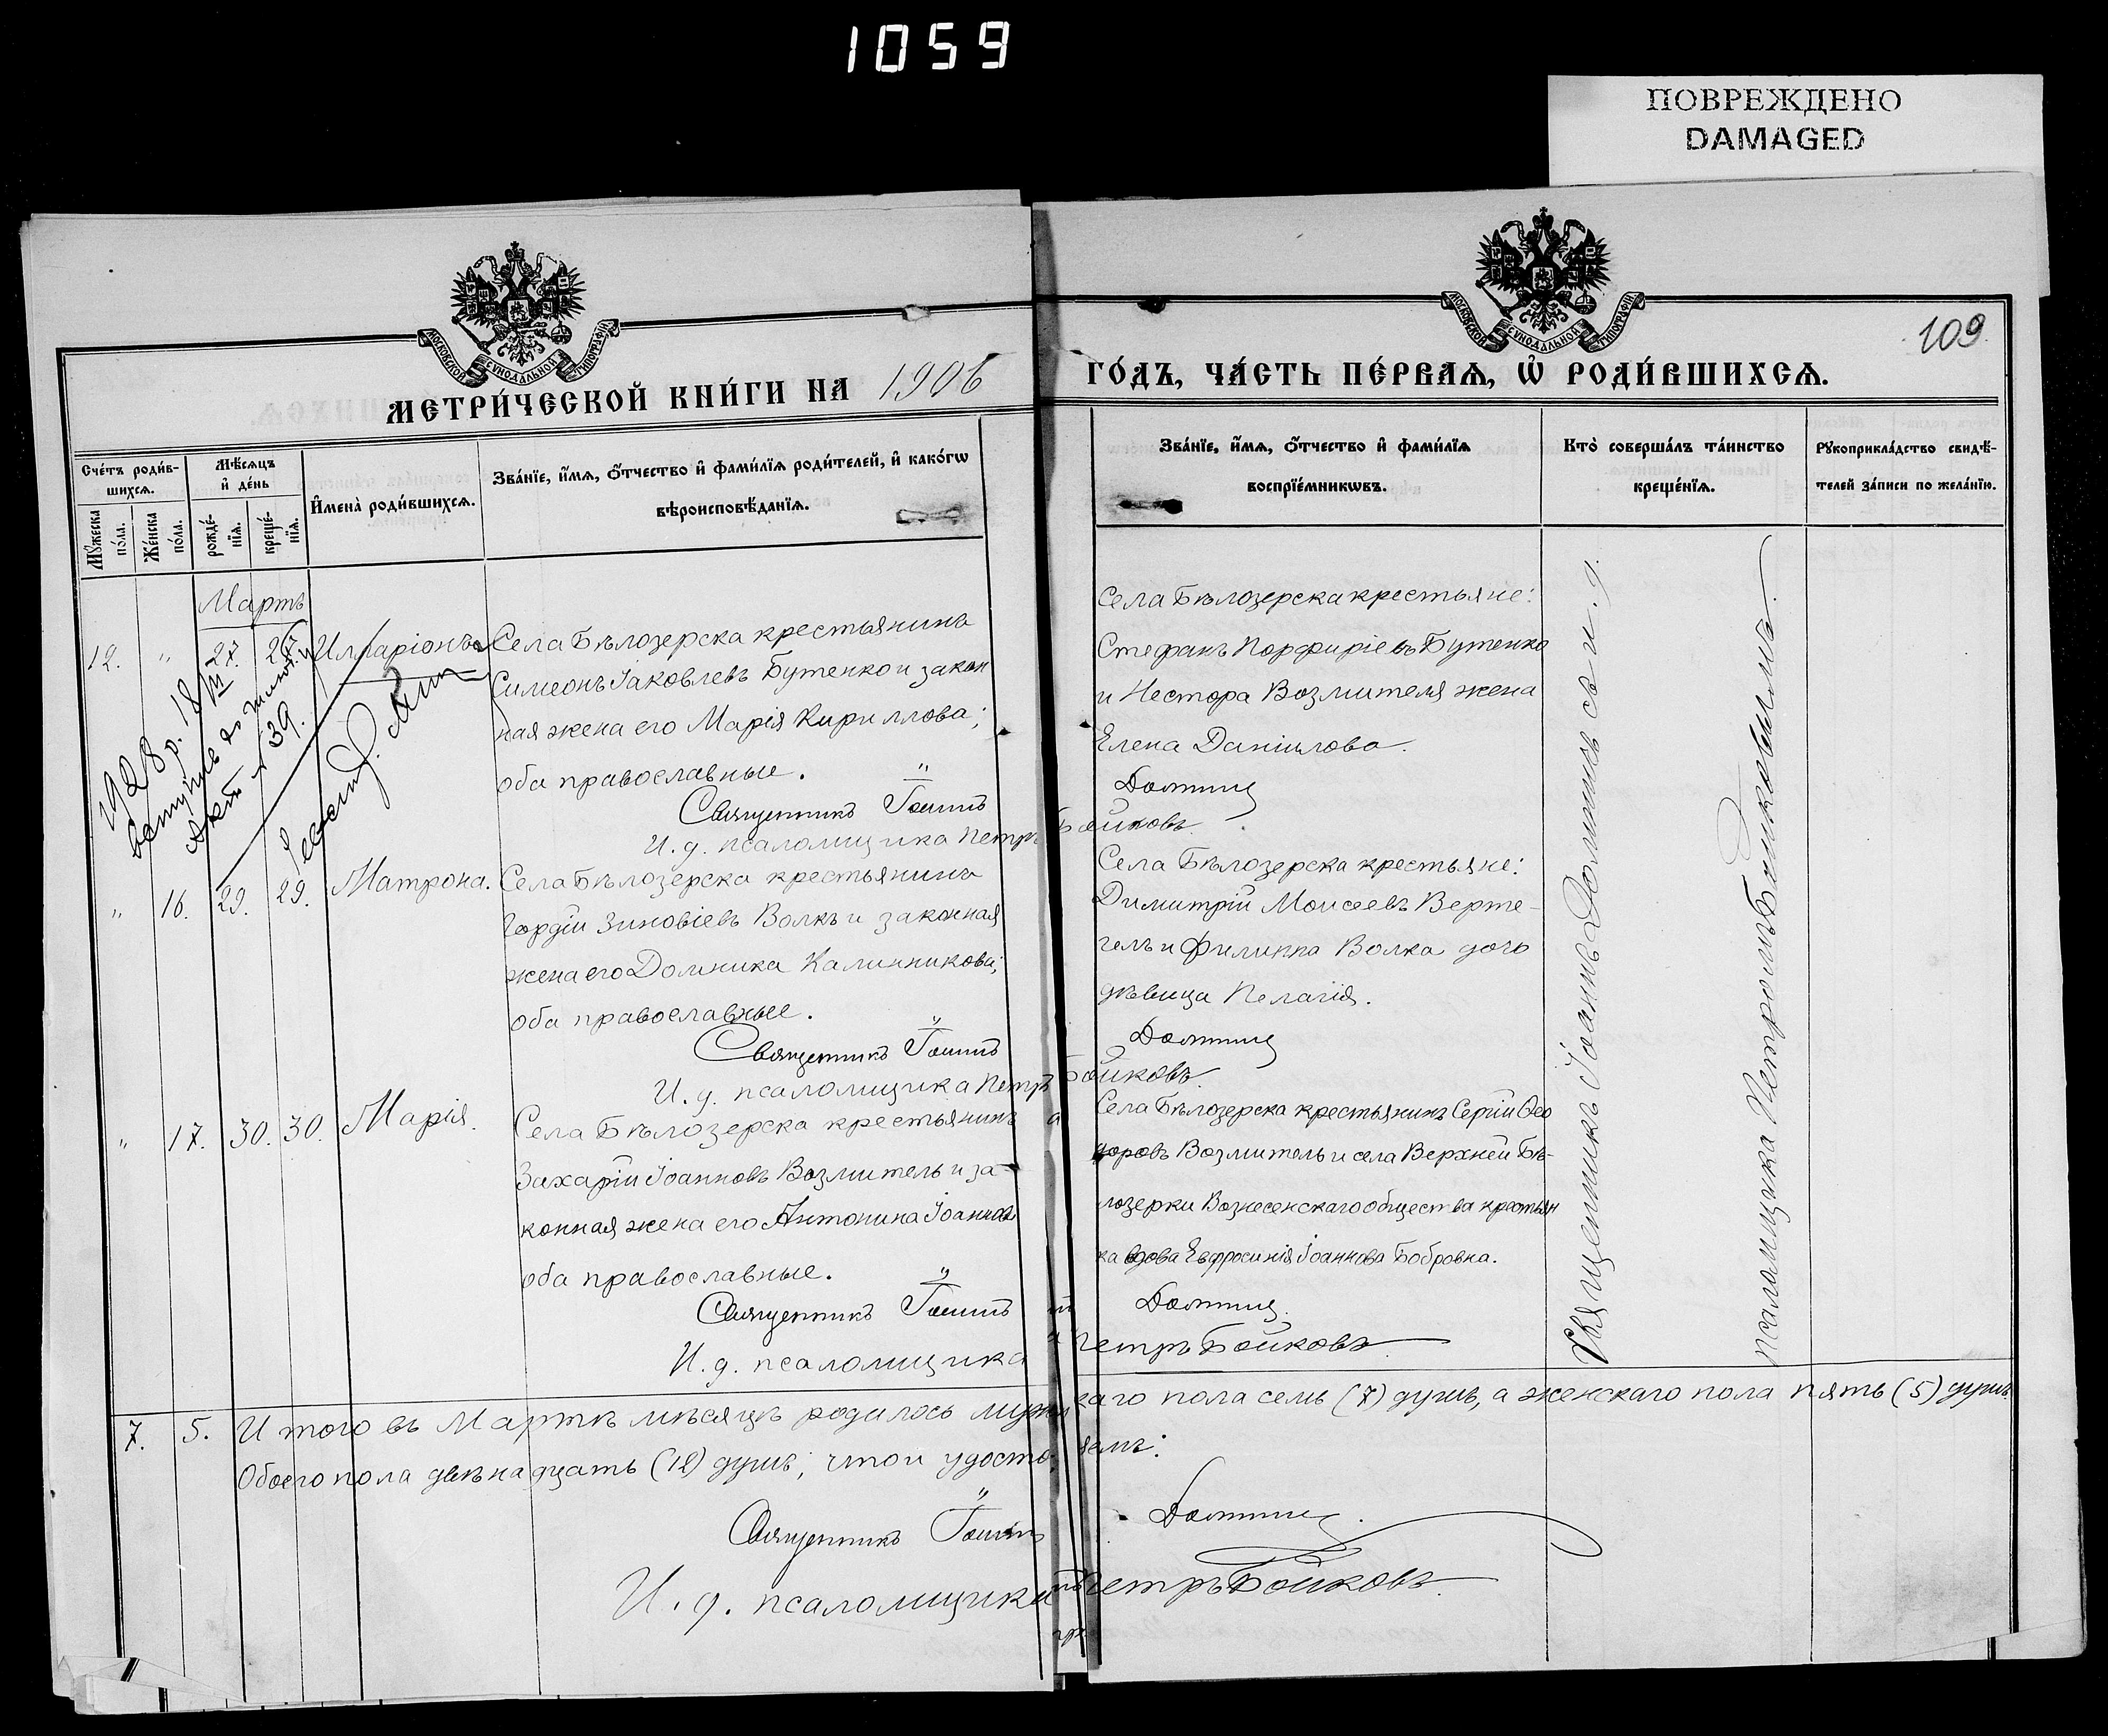 1059
ПОВРЕЖДЕНО
DAMAGED
109
МОСКОВСКОЙ СѴНОДАЛЬНОЙ ТИПОГРАФІИ
МОСКОВСКОЙ СѴНОДАЛЬНОЙ ТИПОГРАФІИ
МЕТРИ́ЧЕСКОЙ КНИ́ГИ НА 1906 ГО́ДЪ, ЧА́СТЬ ПЕ́РВАѦ, Ѡ҆ РОДИ́ВШИХСѦ.
Сче́тъ роди́в-
шихсѧ.
Мꙋ́жеска
по́ла.
Же́нска
по́ла.
Мѣ́сѧцъ
и҆ де́нь
рожде́-
нїѧ.
креще́-
нїѧ.
И҆мена̀ роди́вшихсѧ.
Зва́нїе, и҆́мѧ, ѻ҆́тчество и҆ фами́лїѧ роди́телей, и҆ како́гѡ
вѣроисповѣ́данїѧ.
Зва́нїе, и҆́мѧ, ѻ҆́тчество и҆ фами́лїѧ
воспрїе́мникѡвъ.
Кто̀ соверша́лъ та́инство
креще́нїѧ.
Рꙋкоприкла́дство свидѣ́-
телей за́писи по жела́нїю.
Мартъ
12. " 27. 27. Илларіонъ
Села Бѣлозерска крестьянинъ
Симеонъ Іаковлевъ Бутенко и закон
ная жена его Марія Кириллова;
оба православные.
Священникъ Іоаннъ Доминц
И. д. псаломщика Петръ Бойковъ.
Села Бѣлозерска крестьяне:
Стефанъ Порфиріевъ Бутенко
и Нестора Возмителя жена
Елена Даніилова.
1928 р. 18/III
акт 39.
" 16. 29. 29. Матрона.
Села Бѣлозерска крестьянинъ
Гордій Зиновіевъ Волкъ и законная
жена его Домника Калинникова;
оба православные.
Священникъ Іоаннъ Доминц
И. д. псаломщика Петръ Бойковъ.
Села Бѣлозерска крестьяне:
Димитрій Моисеевъ Верте-
гелъ и Филиппа Волка дочь
дѣвица Пелагія.
" 17. 30. 30. Марія.
Села Бѣлозерска крестьянинъ
Захарій Іоанновъ Возмитель и за-
конная жена его Антонина Іоаннов
оба православные.
Священникъ Іоаннъ Доминц
И. д. псаломщика Петръ Бойковъ.
Села Бѣлозерска крестьянинъ Сергій Ѳео
доровъ Возмитель и села Верхней Бѣ-
лозерки Вознесенскаго общества крестьян
ка вдова Евфросинія Іоаннова Бобровна.
Священникъ Іоаннъ Доминц съ и. д.
псаломщика Петромъ Бойковымъ.
7. 5. Итого въ Мартѣ мѣсяцѣ родилось мужскаго пола семь (7) душъ, а женскаго пола пять (5) душъ.
Обоего пола двѣнадцать (12) душъ, что и удостовѣряемъ:
Священникъ Іоаннъ Доминц.
И. д. псаломщика Петръ Бойковъ.